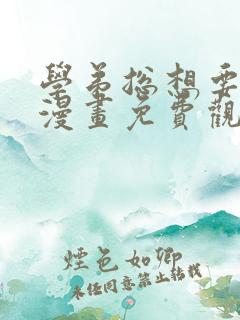 學弟總想要
漫畫免費觀
煙色如卿
未經同意禁止轉載